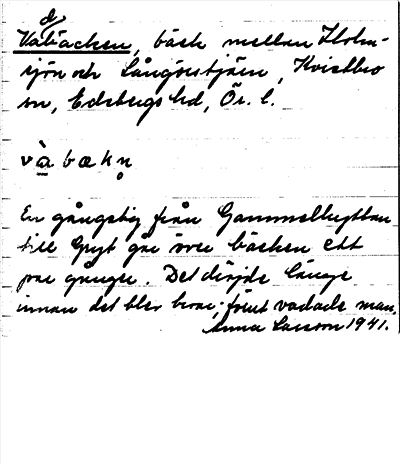 Vadbäcken, bäck mellan Holm-
sjön och Långörstjärn, Kvistbro
sn, Edsbergs hd, Ör. l.
vàbækn̥
En gångstig från Gammelhyttan
till Gryt går över bäcken ett
par gånger. Det dröjde länge
innan det blev broar; förut vadade man.
Anna Larsson 1941.